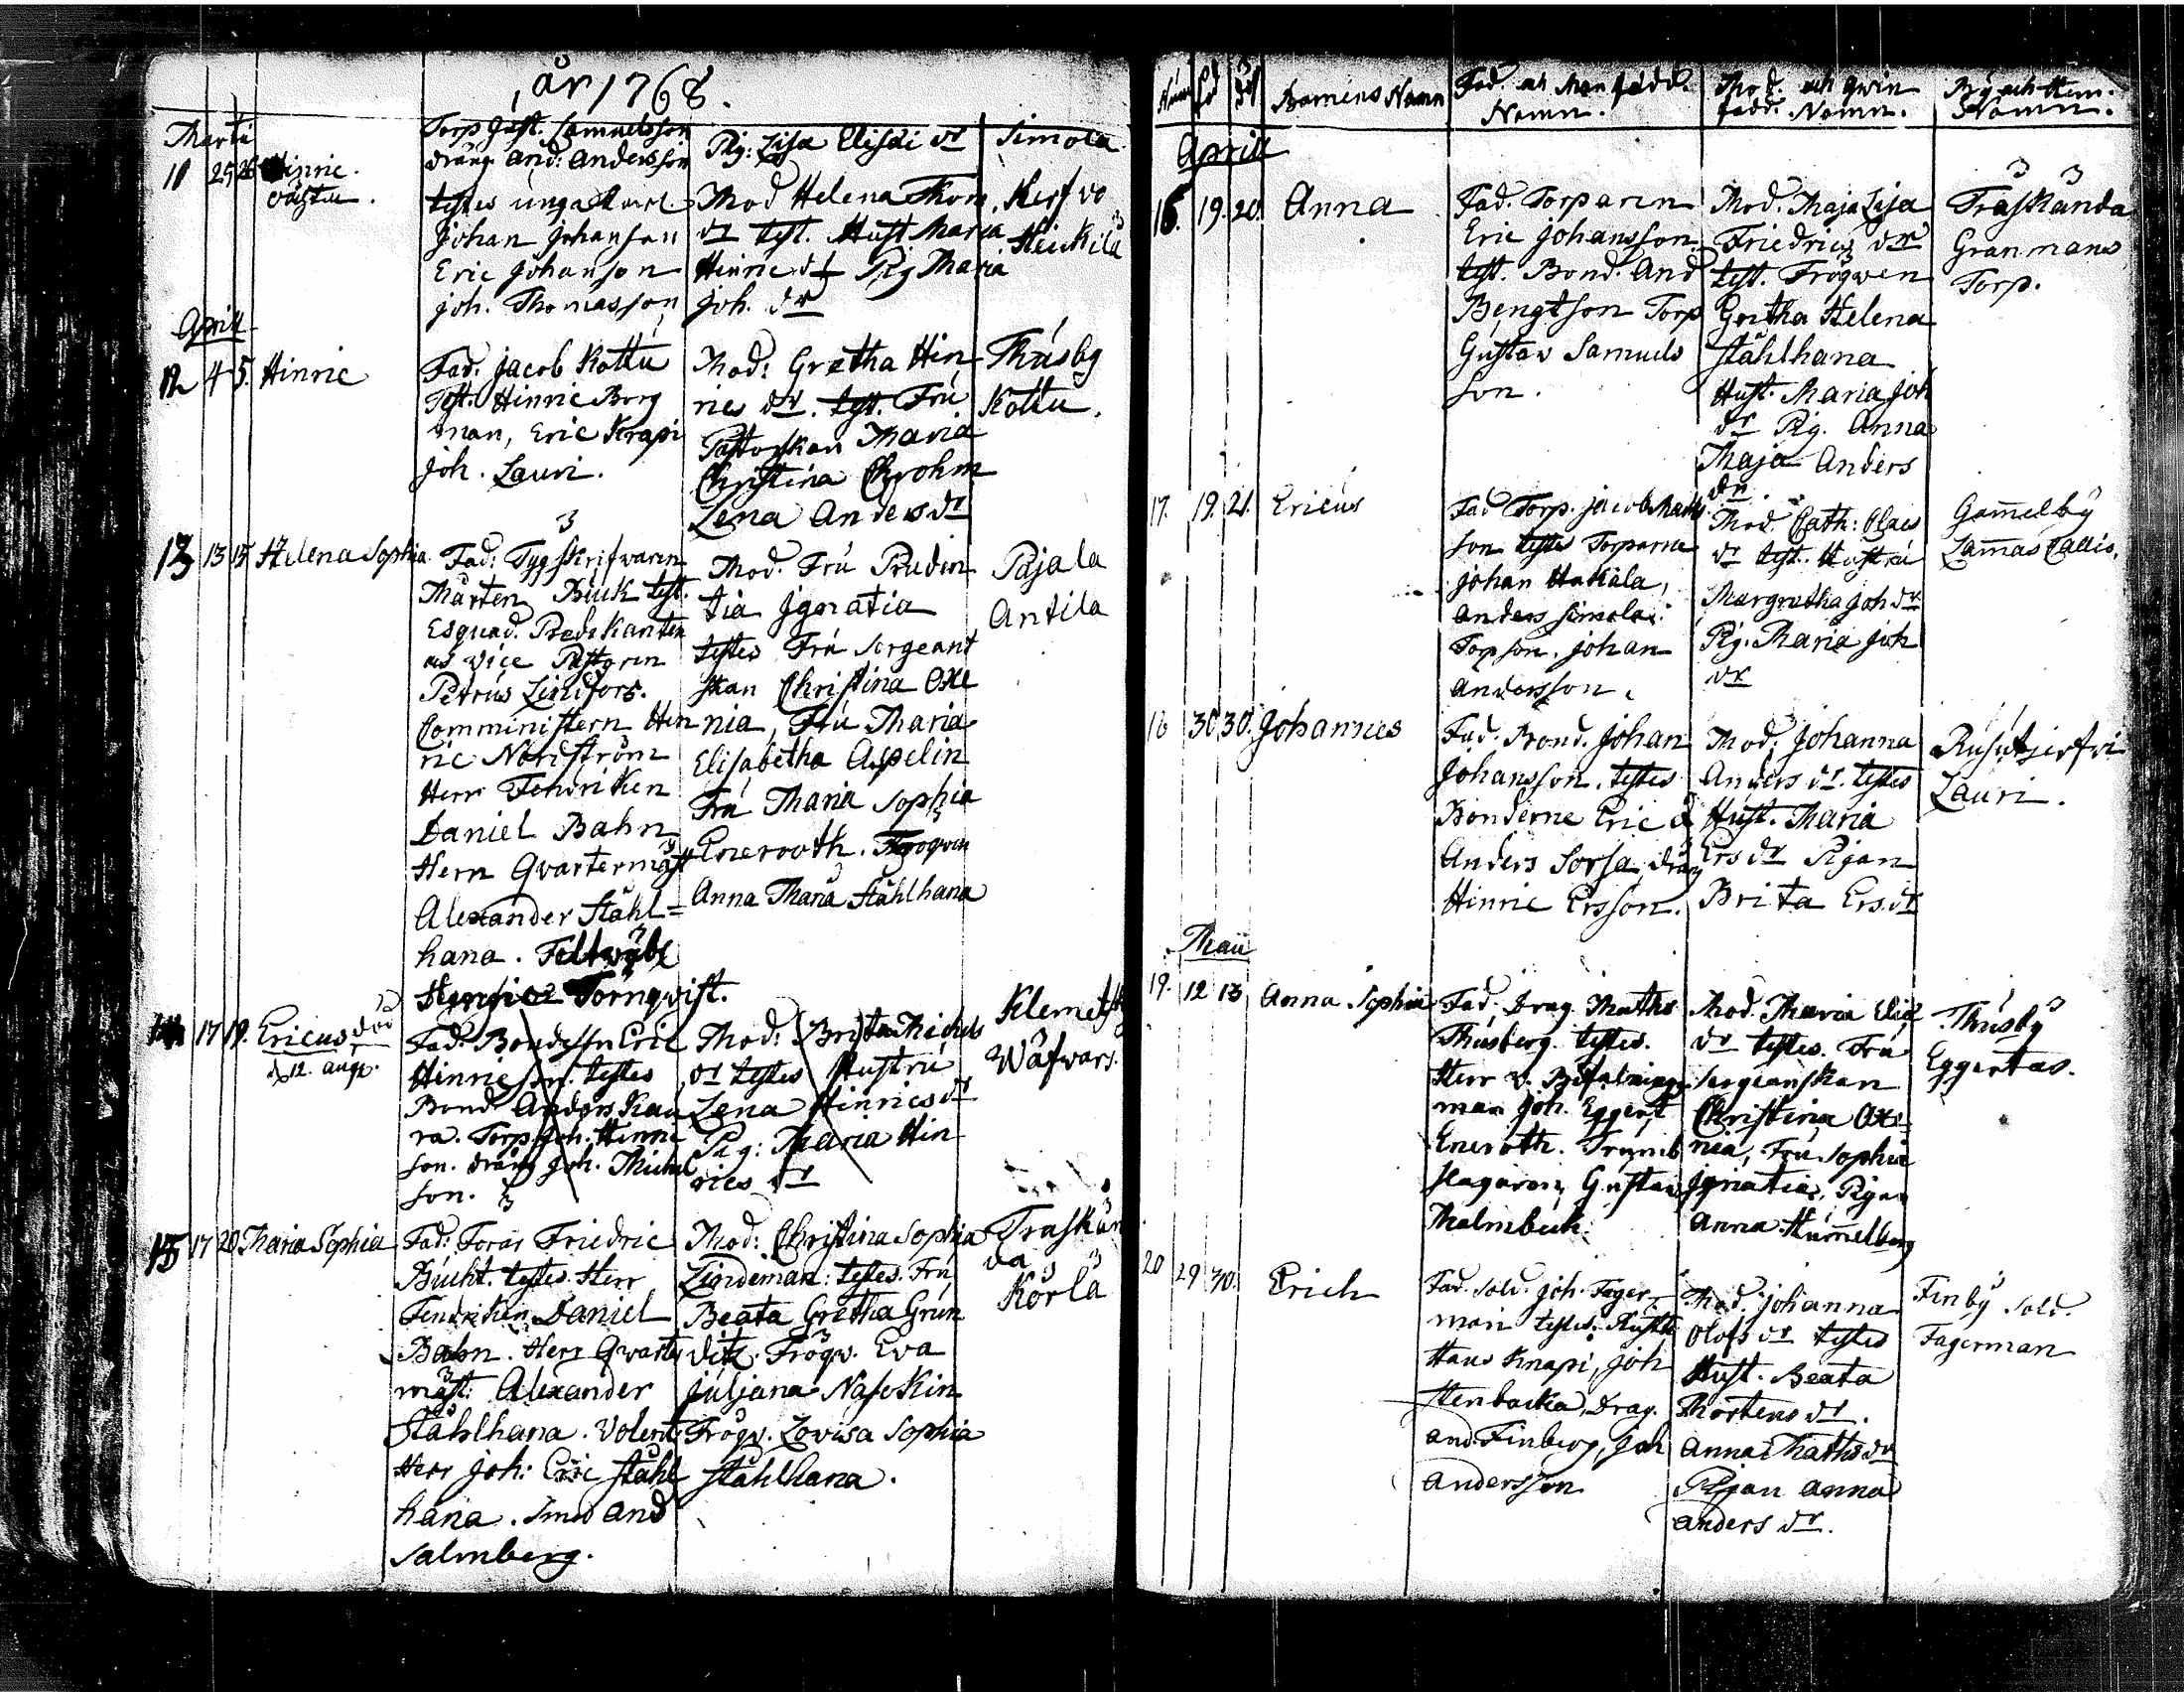 år 1768.
Martii
Torp Gust. Samuelsson
dräng And: Andersson
Pig: Lisa Elisdi dr
Simola
11 25 26 Hinric.
oächta.
testes unga Karl
Johan Johanson
Eric Johanson
Joh. Thomasson
Mod Helena Thom
dr test. Hust. Maria
Hinric dr Pig Maria
Joh. dr
Kerfvo
Heickilä
April
12 4 5. Hinric
Fad. Jacob Kottu
Test. Hinric Borg
man, Eric Knapi
Joh. Lauri.
Mod: Gretha Hin
rics dr. test. Fru
Pastorskan Maria
Christina Chrohm
Lena Anders dr
Thusby
Kottu.
13 13 15 Helena Sophia
Fad: Tygskrifwaren
Mårten Buuk test.
Esquad. Predikanten
as vice Pastoren
Petrus Lindfors.
Comministern Hin
ric Nordström
Herr Fendriken
Daniel Bahn
Herr Qvartermäst
Alexander Ståhl=
hana. Feltwäbl
Törnqvist.
Mod. Fru Pruden
tia Ignatia
testes Fru Sergeant
skan Christina Oxe
nia, Fru Maria
Elisabetha Aspelin
Fru Maria Sophia
Enerooth. Frögven
Anna Maria Stålhana
Pajala
Antila
14 17 19. Ericus död
d 12. aug.
Fad. Bondesn Eric
Hinricson. testes
Bond. Anders Kau
ra. Torp. Joh. Hinric
son. dräng Joh. Michel
son.
Mod: Brita Michels
dr testes Hustru
Lena Hinrics dr
Pig: Maria Hin
rics dr
Klemetsk
Wäfvars.
15 17 20 Maria Sophia
Fad: Forär Friedric
Bucht. testes. Herr
Fendriken Daniel
Bahn. Herr Qvarter
mäst: Alexander
Stählhana. Volent.
Herr Joh: Eric Stähl
hana. Smed And
Salmberg.
Mod: Christina Sophia
Lindeman: testes. Fru
Beata Gretha Grün
ditz. Frögv. Eva
Juljana Nassokin
Frögv. Lovisa Sophia
Stählhana.
Träskän
da
Körlä
Num Föd Döf Barnens Namn
Fad. och Manfadd.
Namn.
Mod. och Qwin
fadd. Namn.
By och Hem.
Namn.
April
16. 19. 20. Anna
Fad. Torparen
Eric Johansson
test. Bond. And
Bengtson Torp
Gustav Samuels
son.
Mod. Maja Lisa
Friedrics dr
test. Frögwen
Gretha Helena
Stählhana
Hust. Maria Joh
dr Pig. Anna
Maja Anders
dr.
Träskända
Granmans
Torp.
17. 19. 21. Ericus
Fad Torp. Jacob Maths
son testes Torparne
Johan Hakala,
Anders Simola.
Torpson. Johan
Andersson.
Mod. Cath: Claes
dr test. Hustru
Margretha Joh dr
Pig. Maria Joh
dr
Gamelby
Lamas Callis.
18 30 30. Johannes
Fad. Bond. Johan
Johansson. testes
Bönderne Eric &
Anders Sorsa, dräng
Hinric Ersson.
Mod: Johanna
Anders dr. testes
Hust. Maria
Ers dr Pigan
Brita Ers. dr
Rusutjerfvi
Lauri.
Maii
19. 12 13 Anna Sophia
Fad. Drag. Maths
Thusberg. testes.
Herr v. Befalnings
man Joh. Eggert
Eneroth. Trumb
slagaren Gustav
Malmbeck.
Mod. Maria Elis
dr testes. Fru
Sergeanskan
Christina Oxe
nia, Fru Sophia
Ignatia, Pigan
Anna Humelberg
Thusby
Eggertas.
20 29 30. Erich
Fad. Sold. Joh. Fager
man testes. Rusth
Hans Knapi, Joh
Stenbacka, Drag.
And. Finberg, Joh
Andersson
Mod. Johanna
Olofs dr testes
Hust. Beata
Mortens dr.
Anna Maths dr
Pigan Anna
Anders dr.
Finby Sold.
Fagerman